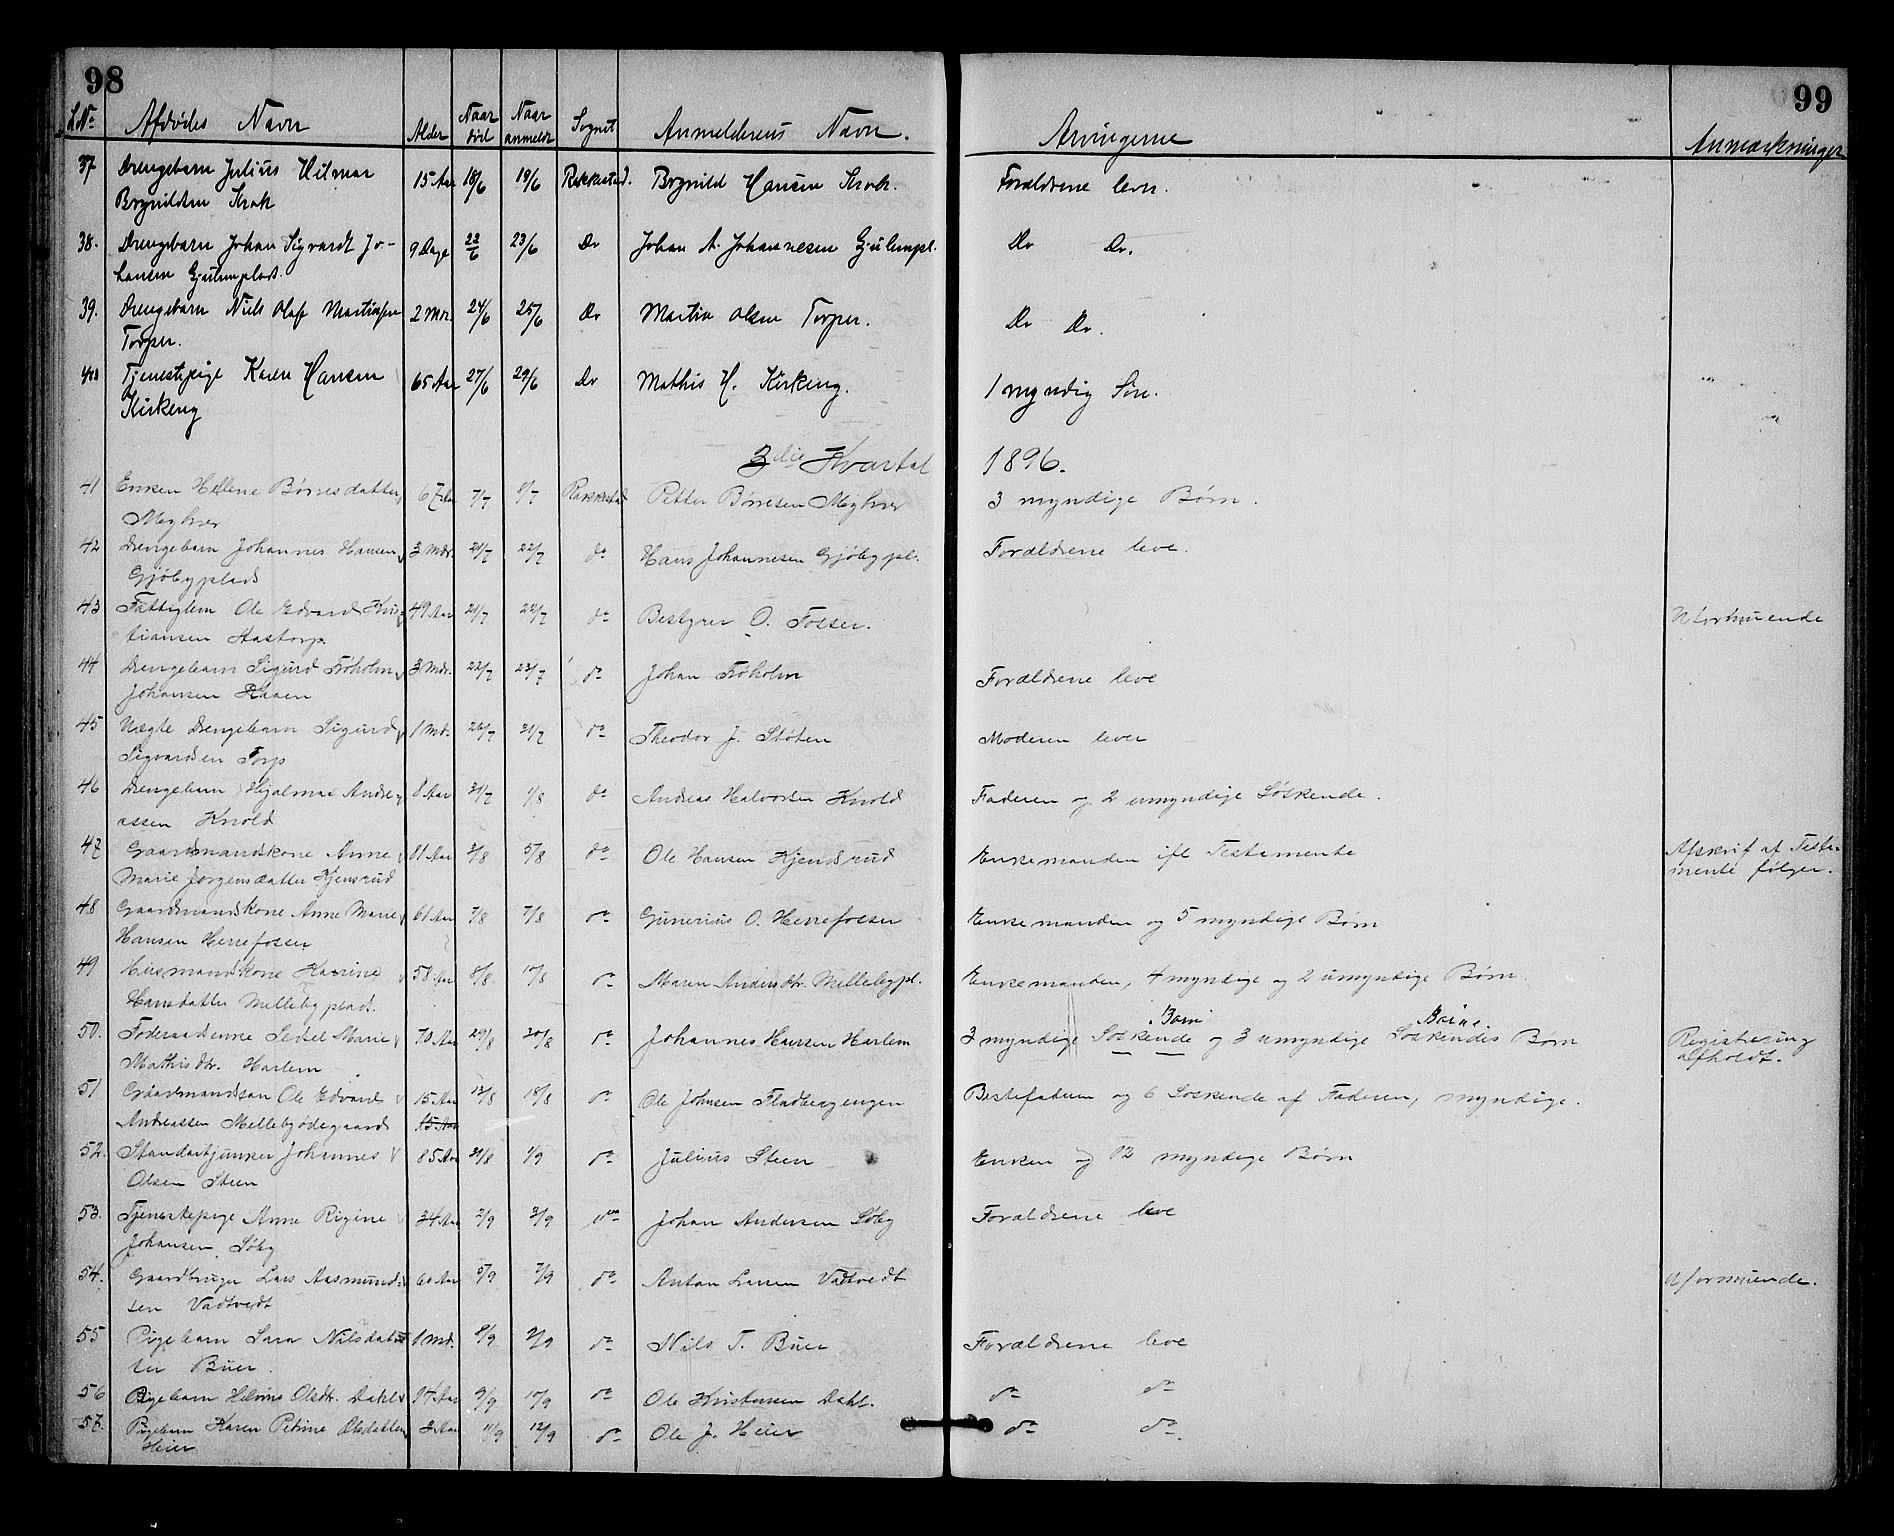 98
L.No Afdødes Navn Alder Naar død Naar anmeldt Sognet Anmelderens Navn. Arvingerne Anmærkninger
99
37 Drengebarn Julius Hilmar 15 Aar 18/6 19/6 Rakkestad. Brynild Hansen Krok. Forældrene lever.
Brynildsen Krok
38. Drengebarn Johan Sigvardt Jo- 9 Dage 22/6 23/6 Do Johan A. Johannesen Gjulempl. Do Do.
hansen Gjulemplads.
39. Drengebarn Niels Olaf Martinsen 2 Mdr. 24/6 25/6 Do Martin Olsen Torper. Do Do.
Torper.
40 Tjenestepige Karen Hansen 65 Aar 27/6 29/6 Do Mathis H. Kirkeng. 1 myndig Søn.
Kirkeng
3die Kvartal 1896.
41 Enken Hellene Børresdatter 67 Aar 7/7 8/7 Rakkestad Petter Børresen Myhrer 3 myndige Børn.
Myhrer
42 Drengebarn Johannes Hansen 3 Mdr. 21/7 22/7 do Hans Johannesen Gjøbypl. Forældrene leve.
Gjøbyplads
43 Fattiglem Ole Edvard Kris- 49 Aar 21/7 22/7 do Bestyrer O. Fosser. Uformuende
tiansen Aastorp.
44 Drengebarn Sigurd Frøholm 3 Mdr. 22/7 23/7 do Johan Frøholm Forældrene leve
Johansen Haaen
45 Uægte Drengebarn Sigurd 1 Md. 26/7 31/7 do Theodor J. Støten Moderen lever
Sigvardsen Torp
46 Drengebarn Hjalmar Andre- 8 Aar 31/7 1/8 do Andreas Halvorsen Knold Faderen og 2 umyndige Søskende.
assen Knold
47 Gaardmandskone Anne 81 Aar 3/8 5/8 do Ole Hansen Kjendsrud Enkemanden ifl Testamente Afskrif af Testa-
Marie Jørgensdatter Kjensrud mente følger.
48 Gaardmandskone Anne Marie 61 Aar 7/8 7/8 do Gunerius O. Herrefosser Enkemanden og 5 myndige Børn
Hansen Herrefosser
49 Husmandskone Katrine 58 Aar 8/8 10/8 do Maren Andersdtr. Mellebypl. Enkemanden, 4 myndige og 2 umyndige Børn.
Hansdatter Mellebyplads.
Børn Børns
50. Føderaadsenke Sedsel Marie 70 Aar 29/8 30/8 do Johannes Hansen Harlem 3 myndige Søskende og 3 umyndige Søskendes Børn Registrering
Mathisdtr. Harlem afholdt.
51 Gaardmandsøn Ole Edvard 15 Aar 13/8 18/8 do Ole Johnsen Fladbergengen Bestefaderen og 6 Søskende af Faderen, myndige.
Andreassen Mellebyødegaard 15 Aar
52. Standartjunker Johannes 85 Aar 31/8 1/9 do Julius Steen Enken og 12 myndige Børn
Olsen Steen
53. Tjenestepige Anne Rigine 34 Aar 2/9 3/9 do Johan Andersen Søby Forældrene leve
Johansen Søby
54. Gaardbruger Lars Aasmund- 60 Aar 5/9 7/9 do Anton Larsen Vadtvedt Uformuende.
sen Vadtvedt
55 Pigebarn Sara Nilsdat- 1 Md. 8/9 9/9 do Nils T. Buer Forældrene leve
ter Buer.
56 Pigebarn Helene Olsdtr. Dahl 14 Aar 9/9 10/9 do Ole Kristensen Dahl. do do
57. Pigebarn Karen Petrine Olsdatter 3 Aar 11/9 12/9 do Ole J. Heier do do.
Heier